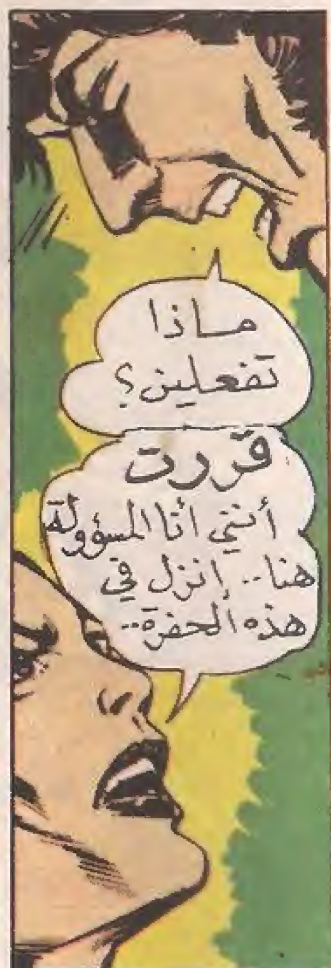 مـاذا
تفعلين؟
قررت
أنني أنا المسؤولة
هنا.. إنزل في
هذه الحفرة..